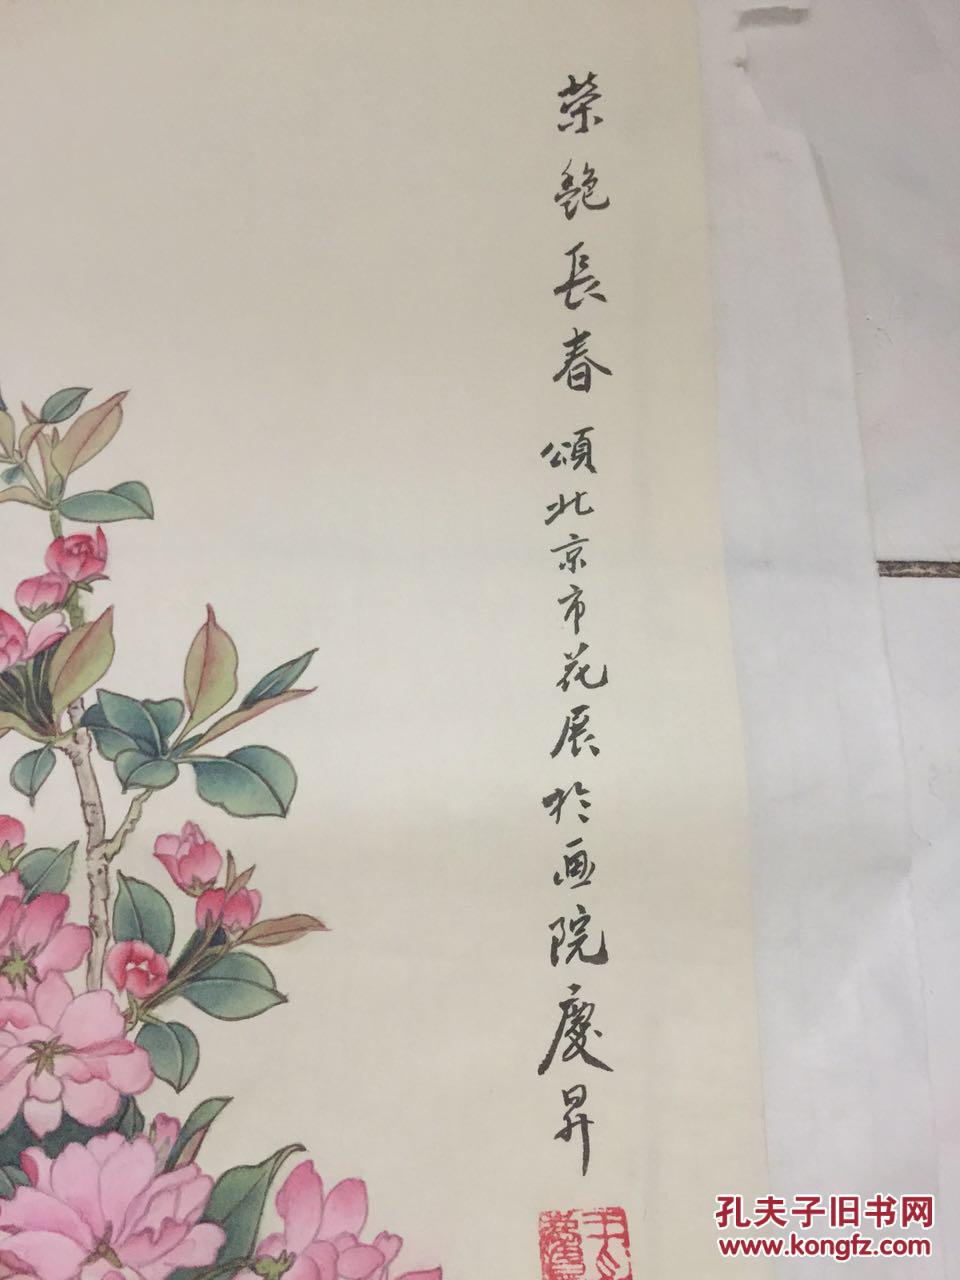 荣艳長春 頌北京市花展於画院慶昇
孔夫子旧书网
www.kongfz.com